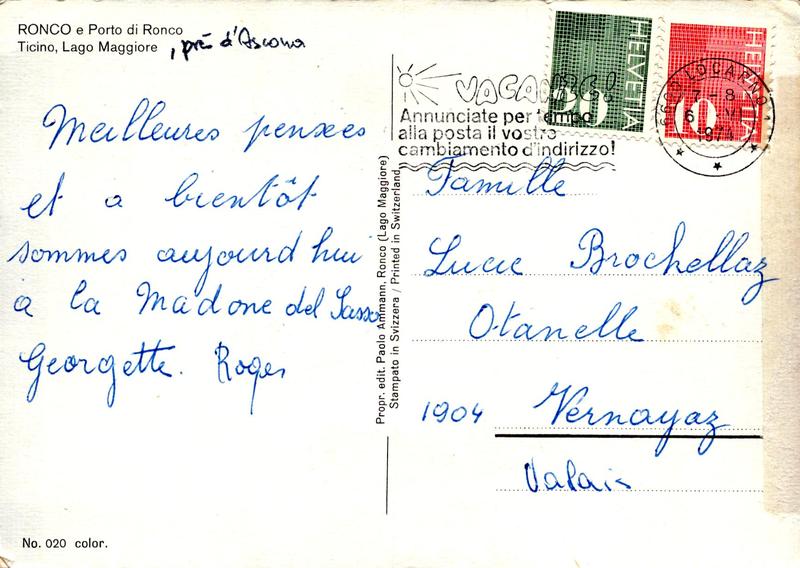 RONCO e Porto di Ronco
Ticino, Lago Maggiore , près d'Ascona
Meilleures pensées
et a bientôt
sommes aujourd hui
a la Madone del Sasso
Georgette. Roger
No. 020 color.
Propr. edit. Paolo Ammann, Ronco (Lago Maggiore)
Stampato in Svizzera / Printed in Switzerland
VACANZE!
Annunciate per tempo
alla posta il vostro
cambiamento d'indirizzo!
HELVETIA
20
HELVETIA
10
6600 LOCARNO 1
7-8
6. VI
1974
Famille
Lucie Brochellaz
Otanelle
1904 Vernayaz
Valais